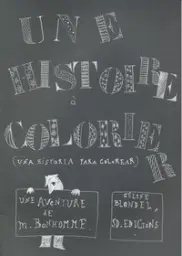 UNE
HISTOIRE
à
COLORIER
(UNA HISTORIA PARA COLOREAR)
UNE AVENTURE
DE
M. BONHOMME.
CÉLINE
BLONDEL,
SD. EDICIONS